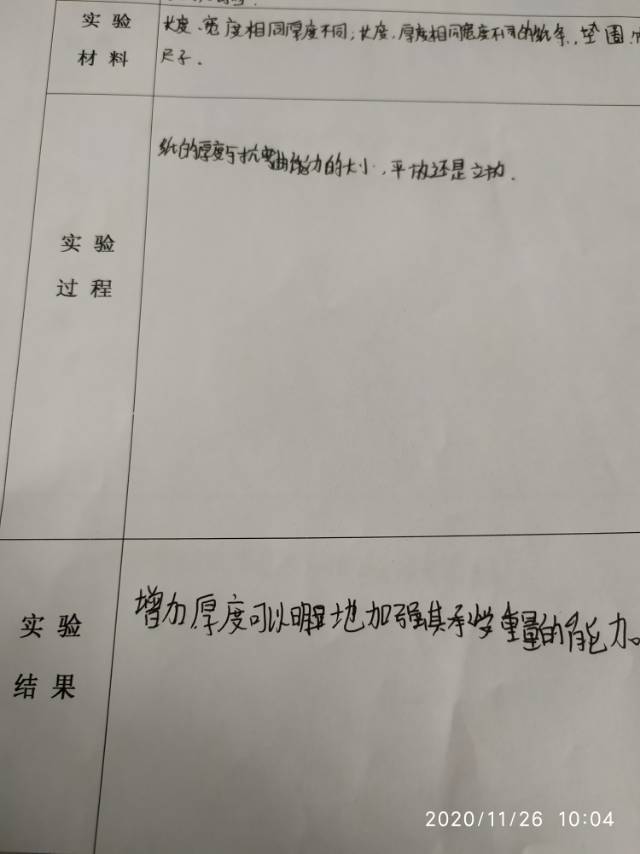 实验材料
长度、宽度相同厚度不同;长度、厚度相同宽度不同的纸条,垫圈,
尺子。
实验过程
纸的厚度与抗弯曲能力的大小,平放还是立放.
实验结果
增加厚度可以明显地加强其承受重量的能力。
2020/11/26 10:04